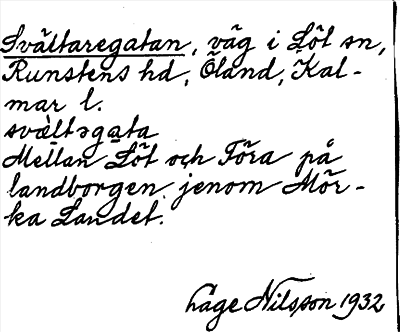 Svältaregatan, väg i Löt sn,
Runstens hd, Öland, Kal-
mar l.
svὰltəgata
Mellan Löt och Föra på
landborgen jenom Mör-
ka Landet.
Åge Nilsson 1932